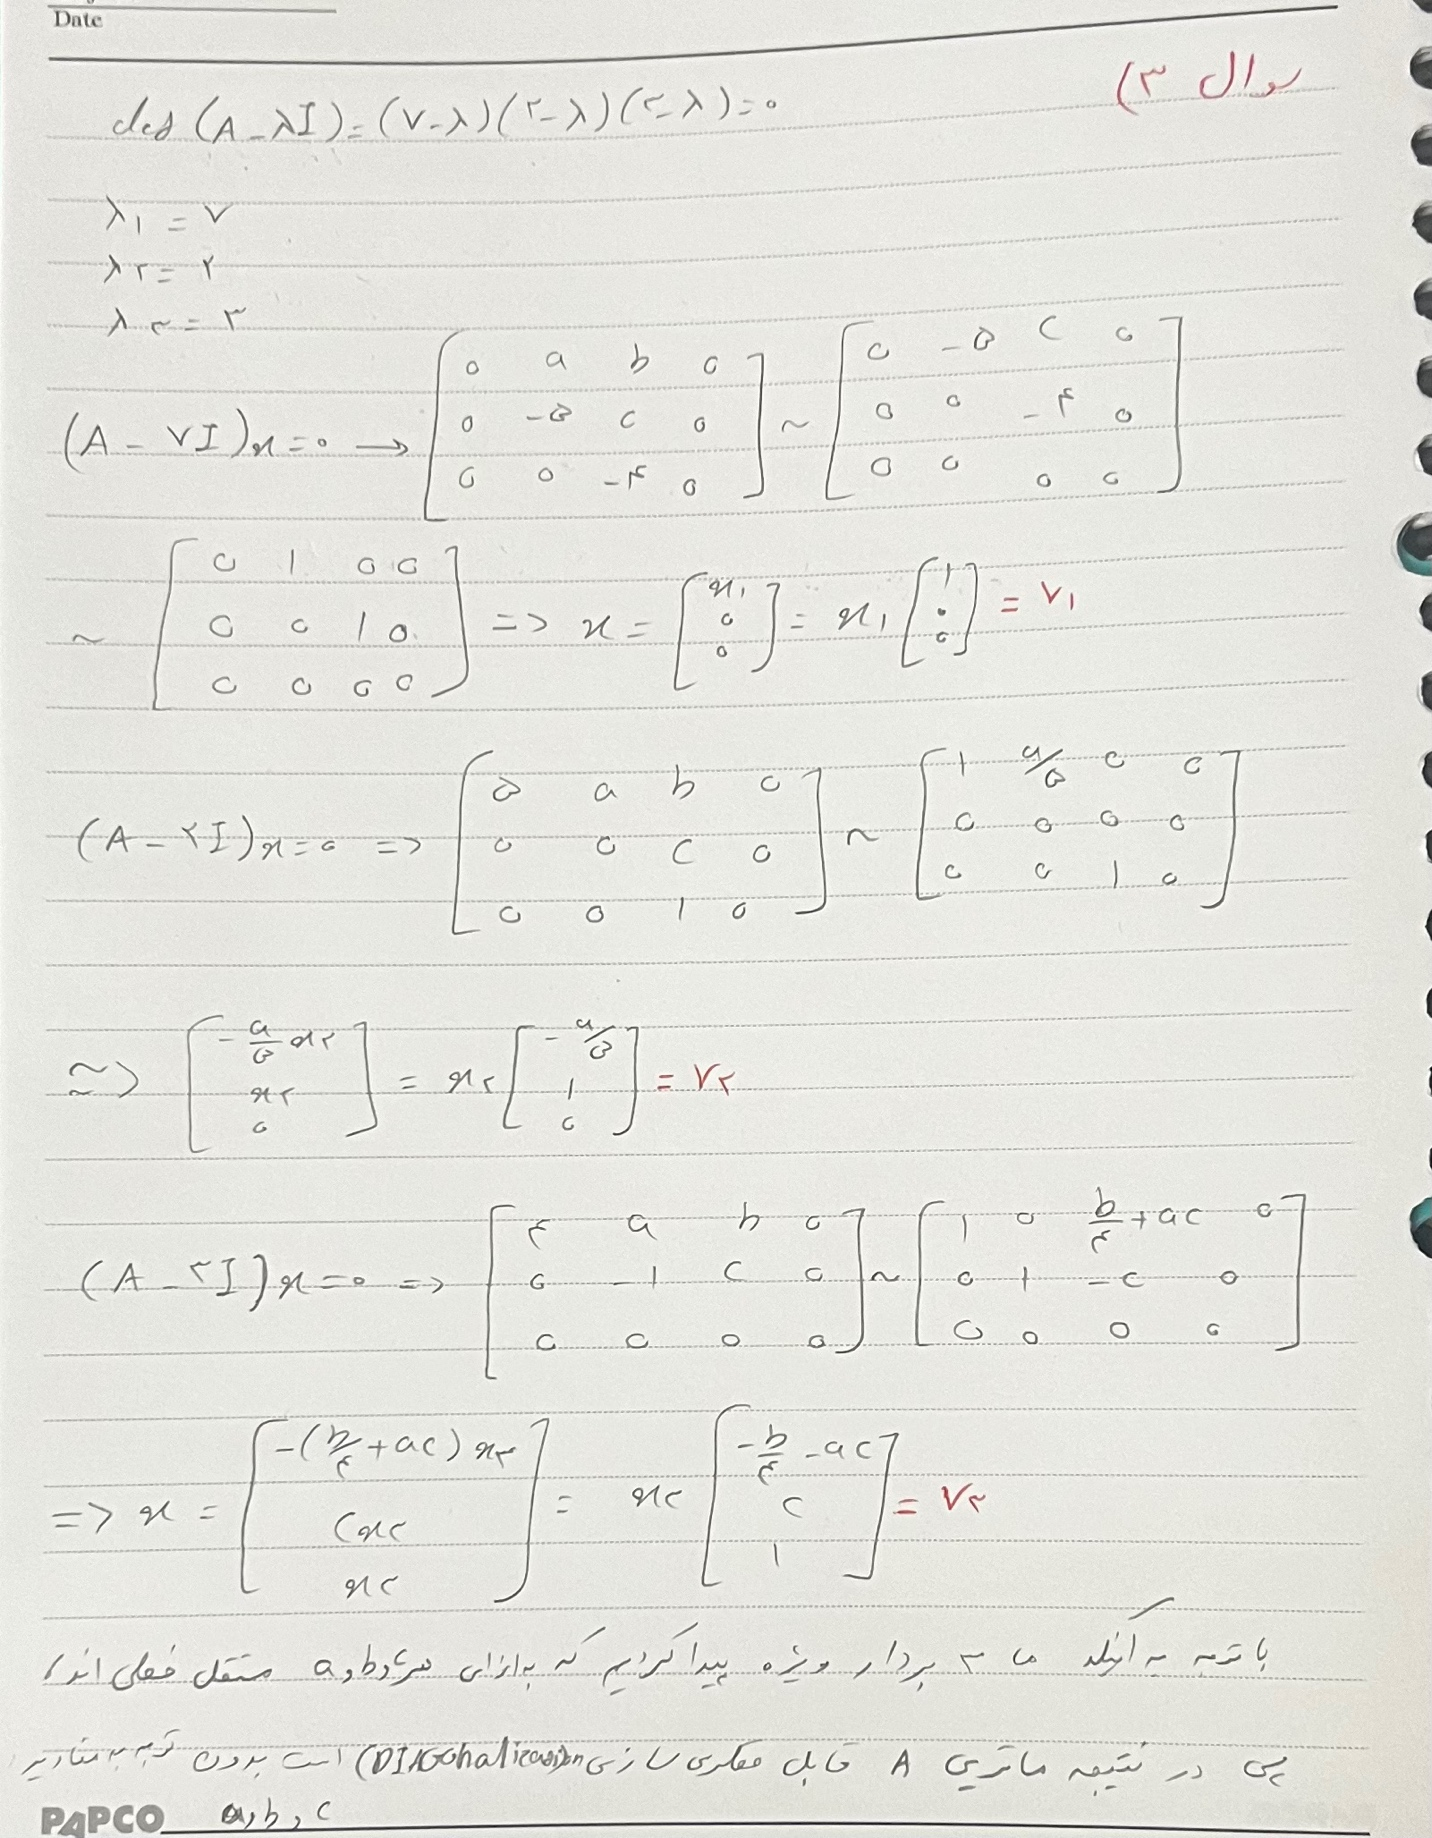 Date
سوال ۳)
det (A - λI) = (۷-λ)(۲-λ)(۳-λ) = ۰
λ۱ = ۷
λ۲ = ۲
λ۳ = ۳
(A - ۷I)x = ۰ → [۰ a b ۰; ۰ -۵ c ۰; ۰ ۰ -۴ ۰] ~ [۰ -۵ c ۰; ۰ ۰ -۴ ۰; ۰ ۰ ۰ ۰]
~ [۰ ۱ ۰ ۰; ۰ ۰ ۱ ۰; ۰ ۰ ۰ ۰] => x = [x۱; ۰; ۰] = x۱ [۱; ۰; ۰] = v۱
(A - ۲I)x = ۰ => [۵ a b ۰; ۰ ۰ c ۰; ۰ ۰ ۱ ۰] ~ [۱ a/۵ ۰ ۰; ۰ ۰ ۰ ۰; ۰ ۰ ۱ ۰]
=> [-a/۵ x۲; x۲; ۰] = x۲ [-a/۵; ۱; ۰] = v۲
(A - ۳I)x = ۰ => [۴ a b ۰; ۰ -۱ c ۰; ۰ ۰ ۰ ۰] ~ [۱ ۰ b/۴ + ac ۰; ۰ ۱ -c ۰; ۰ ۰ ۰ ۰]
=> x = [-(b/۴ + ac) x۳; c x۳; x۳] = x۳ [-b/۴ - ac; c; ۱] = v۳
با توجه به آنکه ما ۳ بردار ویژه پیدا کردیم که به ازای هر c و b و a مستقل خطی اند،
پس در نتیجه ماتریس A قابل قطری سازی (DIAGonalization) است بدون توجه به مقادیر
a, b, c
PAPCO